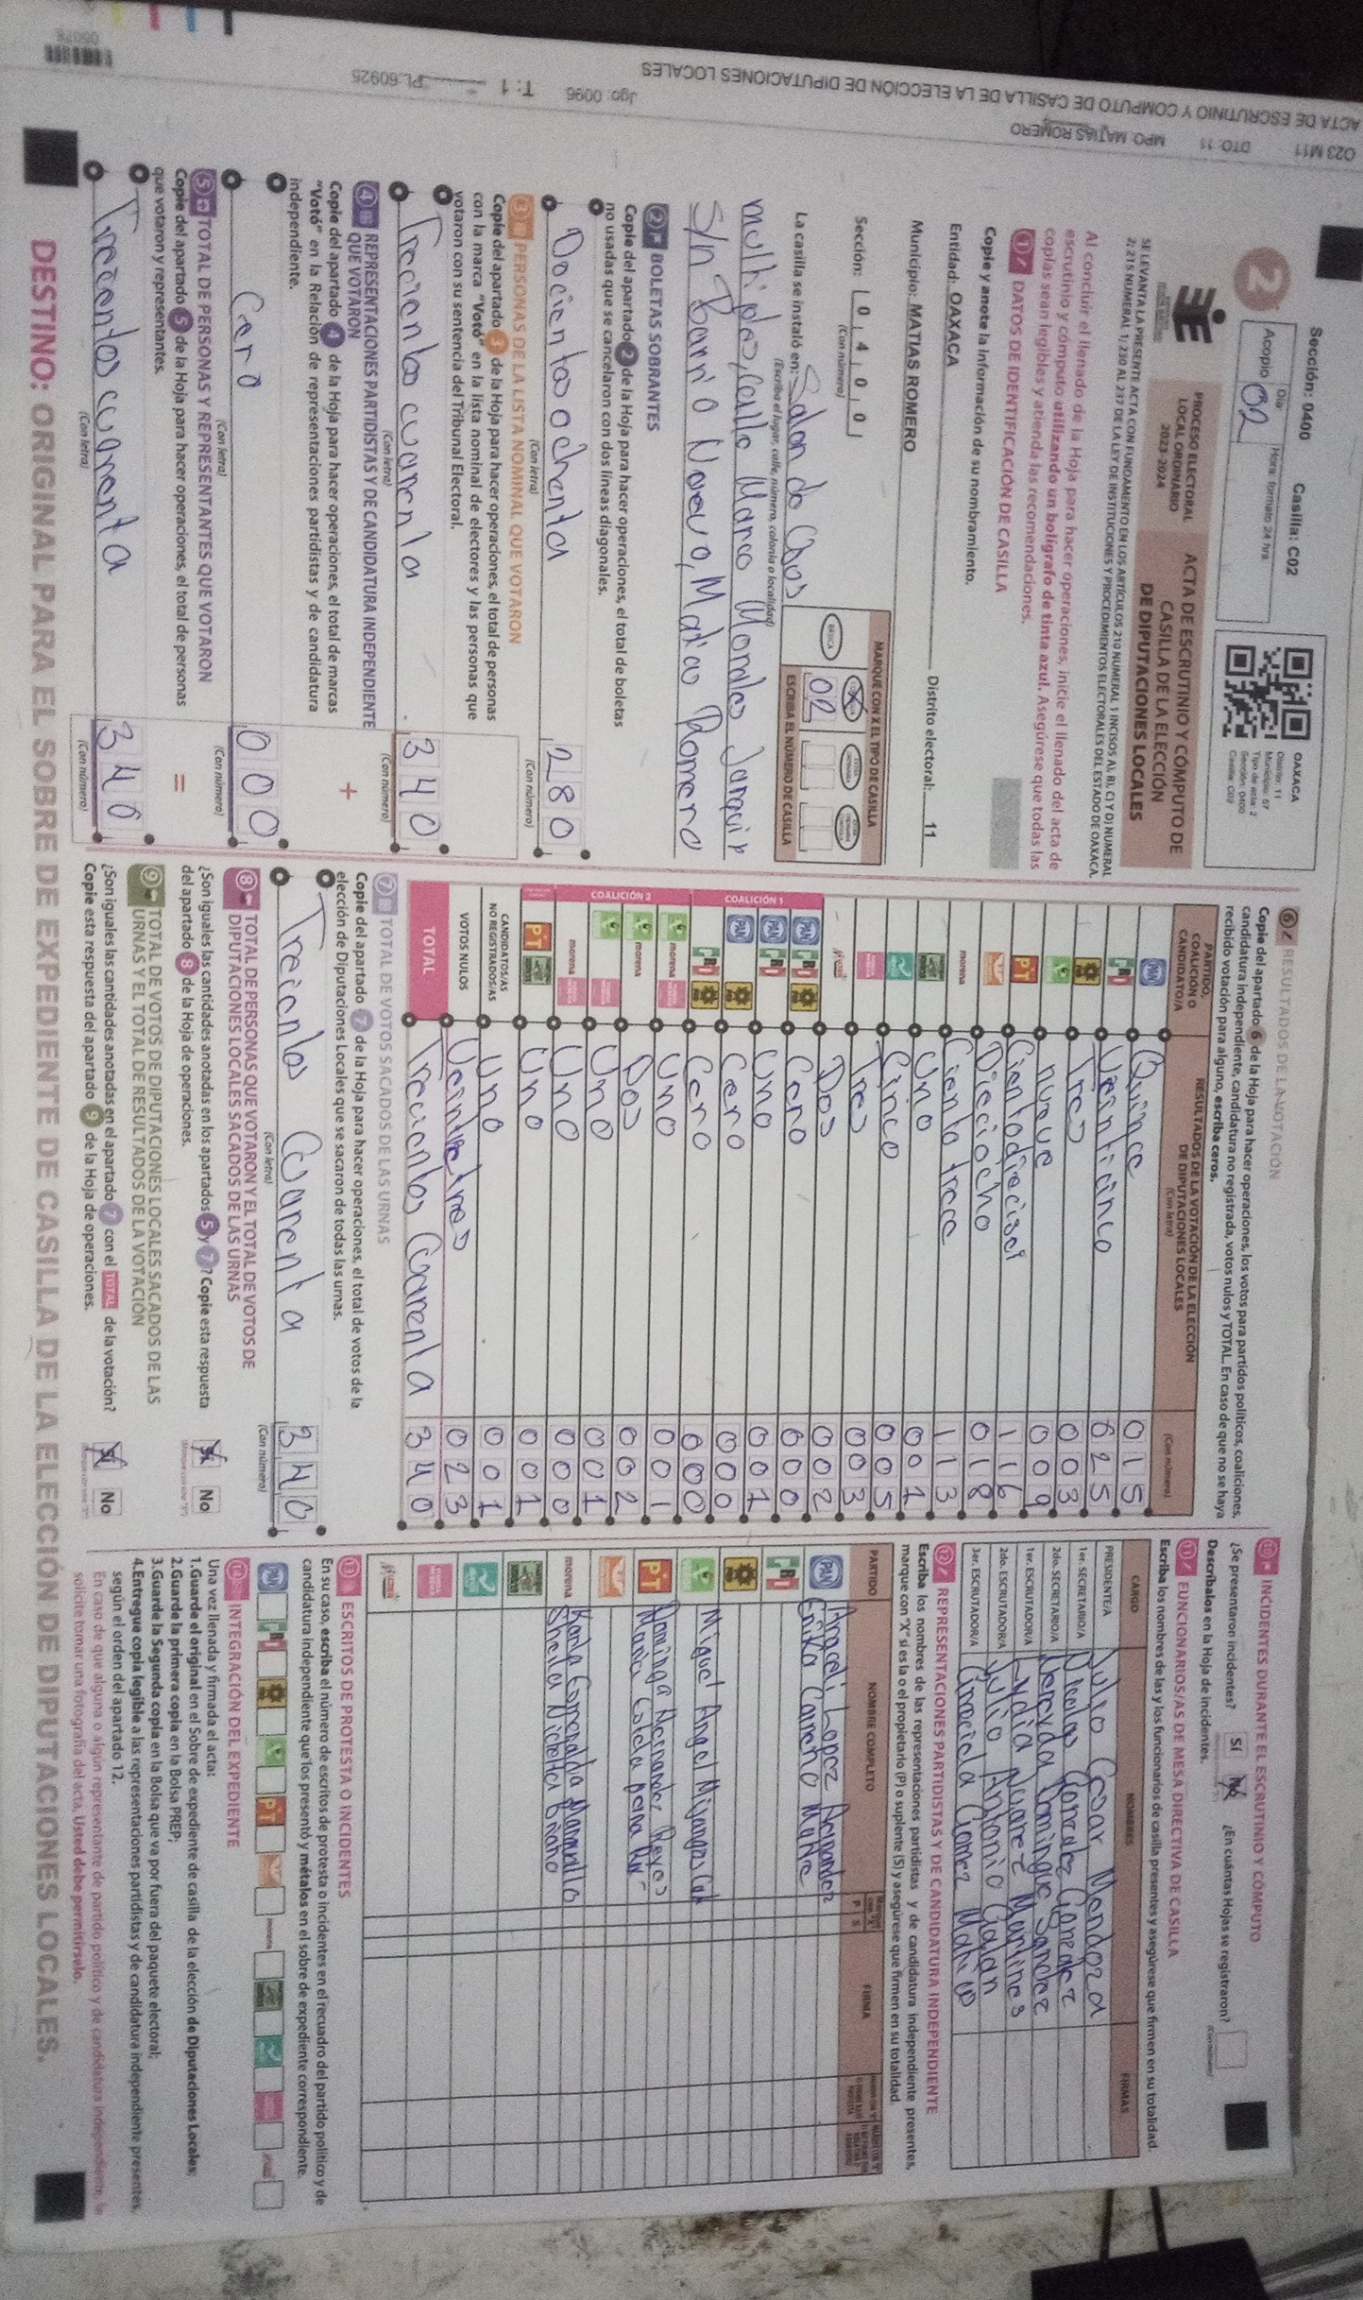 O23 M11 DTO. 11 MPO. MATIAS ROMERO
ACTA DE ESCRUTINIO Y CÓMPUTO DE CASILLA DE LA ELECCIÓN DE DIPUTACIONES LOCALES
Jgo. 0096 T: 1 PL:60925
Sección: 0400 Casilla: C02
2
Acopio
Día:
02
Hora: formato 24 hrs
OAXACA
Distrito: 11
Municipio: 57
Tipo de acta: 2
Sección: 0400
Casilla: C02
PROCESO ELECTORAL
LOCAL ORDINARIO
2023-2024
ACTA DE ESCRUTINIO Y CÓMPUTO DE
CASILLA DE LA ELECCIÓN
DE DIPUTACIONES LOCALES
Al concluir el llenado de la Hoja para hacer operaciones, inicie el llenado del acta de
escrutinio y cómputo utilizando un bolígrafo de tinta azul. Asegúrese que todas las
copias sean legibles y atienda las recomendaciones.
1 DATOS DE IDENTIFICACIÓN DE CASILLA
Copie y anote la información de su nombramiento.
Entidad: OAXACA Distrito electoral: 11
Municipio: MATIAS ROMERO
Sección: 0 4 0 0
(Con número)
MARQUE CON X EL TIPO DE CASILLA
BÁSICA
02
ESCRIBA EL NÚMERO DE CASILLA
La casilla se instaló en: Salon de Usos
(Escriba el lugar, calle, número, colonia o localidad)
multiples, calle Marco Morales
S/n Barrio Nuevo, Matias Romero
2 BOLETAS SOBRANTES
Copie del apartado 2 de la Hoja para hacer operaciones, el total de boletas
no usadas que se cancelaron con dos líneas diagonales.
Docientos ochenta 280
(Con letra) (Con número)
3 PERSONAS DE LA LISTA NOMINAL QUE VOTARON
Copie del apartado 3 de la Hoja para hacer operaciones, el total de personas
con la marca "Votó" en la lista nominal de electores y las personas que
votaron con su sentencia del Tribunal Electoral.
Trecientos cuarenta 340
(Con letra) (Con número)
4 REPRESENTACIONES PARTIDISTAS Y DE CANDIDATURA INDEPENDIENTE
QUE VOTARON
Copie del apartado 4 de la Hoja para hacer operaciones, el total de marcas
"Votó" en la Relación de representaciones partidistas y de candidatura
independiente.
+
Cero 000
(Con letra) (Con número)
5 TOTAL DE PERSONAS Y REPRESENTANTES QUE VOTARON
Copie del apartado 5 de la Hoja para hacer operaciones, el total de personas
que votaron y representantes.
=
Trecientos cuarenta 340
(Con letra) (Con número)
6 RESULTADOS DE LA VOTACIÓN
Copie del apartado 6 de la Hoja para hacer operaciones, los votos para partidos políticos, coaliciones,
candidatura independiente, candidatura no registrada, votos nulos y TOTAL. En caso de que no se haya
recibido votación para alguno, escriba ceros.
PARTIDO, COALICIÓN O CANDIDATO/A
RESULTADOS DE LA VOTACIÓN DE LA ELECCIÓN DE DIPUTACIONES LOCALES
(Con letra) (Con número)
PAN Quince 015
PRI Veinticinco 025
PRD Tres 003
nueve 009
PT Cientodieciseí 116
Dieciocho 018
morena Ciento trece 113
Uno 001
Cinco 005
Tres 003
Dos 002
COALICIÓN 1
PAN PRI PRD Cero 000
PAN PRI Uno 001
PAN PRD Cero 000
PRI PRD Cero 000
COALICIÓN 2
morena Uno 001
morena Dos 002
Uno 001
morena Uno 000
PT Uno 001
CANDIDATOS/AS NO REGISTRADOS/AS Uno 001
VOTOS NULOS Veintitres 023
TOTAL Trecientos Cuarenta 340
7 TOTAL DE VOTOS SACADOS DE LAS URNAS
Copie del apartado 7 de la Hoja para hacer operaciones, el total de votos de la
elección de Diputaciones Locales que se sacaron de todas las urnas.
Trecientos Cuarenta 340
(Con letra) (Con número)
8 TOTAL DE PERSONAS QUE VOTARON Y EL TOTAL DE VOTOS DE
DIPUTACIONES LOCALES SACADOS DE LAS URNAS
¿Son iguales las cantidades anotadas en los apartados 5 y 7? Copie esta respuesta
del apartado 8 de la Hoja de operaciones.
Sí No
9 TOTAL DE VOTOS DE DIPUTACIONES LOCALES SACADOS DE LAS
URNAS Y EL TOTAL DE RESULTADOS DE LA VOTACIÓN
¿Son iguales las cantidades anotadas en el apartado 7 con el TOTAL de la votación?
Copie esta respuesta del apartado 9 de la Hoja de operaciones.
Sí No
10 INCIDENTES DURANTE EL ESCRUTINIO Y CÓMPUTO
¿Se presentaron incidentes? Sí No ¿En cuántas Hojas se registraron?
Descríbalos en la Hoja de incidentes.
11 FUNCIONARIOS/AS DE MESA DIRECTIVA DE CASILLA
Escriba los nombres de las y los funcionarios de casilla presentes y asegúrese que firmen en su totalidad.
CARGO NOMBRES FIRMAS
PRESIDENTE/A Julio Cesar Mendoza
1er. SECRETARIO/A Gonzalez
2do. SECRETARIO/A Dominguez Sanchez
1er. ESCRUTADOR/A Lydia Alvarez Martines
2do. ESCRUTADOR/A Julio Antonio Galan
3er. ESCRUTADOR/A Graciela Gomez
12 REPRESENTACIONES PARTIDISTAS Y DE CANDIDATURA INDEPENDIENTE
Escriba los nombres de las representaciones partidistas y de candidatura independiente presentes,
marque con "X" si es la o el propietario (P) o suplente (S) y asegúrese que firmen en su totalidad.
PARTIDO NOMBRE COMPLETO P S FIRMA
PAN Araceli Lopez
Erika Carreño
PRI
PRD
Miguel Angel Mijangos
PT Dominga Hernandez Reyes
morena Karla Esmeralda
Sheila
13 ESCRITOS DE PROTESTA O INCIDENTES
En su caso, escriba el número de escritos de protesta o incidentes en el recuadro del partido político y de
candidatura independiente que los presentó y métalos en el sobre de expediente correspondiente.
PAN PRI PRD PT morena
14 INTEGRACIÓN DEL EXPEDIENTE
Una vez llenada y firmada el acta:
1.Guarde el original en el Sobre de expediente de casilla de la elección de Diputaciones Locales;
2.Guarde la primera copia en la Bolsa PREP;
3.Guarde la Segunda copia en la Bolsa que va por fuera del paquete electoral;
4.Entregue copia legible a las representaciones partidistas y de candidatura independiente presentes,
según el orden del apartado 12.
En caso de que alguna o algún representante de partido político y de candidatura independiente, le
solicite tomar una fotografía del acta, Usted debe permitírselo.
DESTINO: ORIGINAL PARA EL SOBRE DE EXPEDIENTE DE CASILLA DE LA ELECCIÓN DE DIPUTACIONES LOCALES.